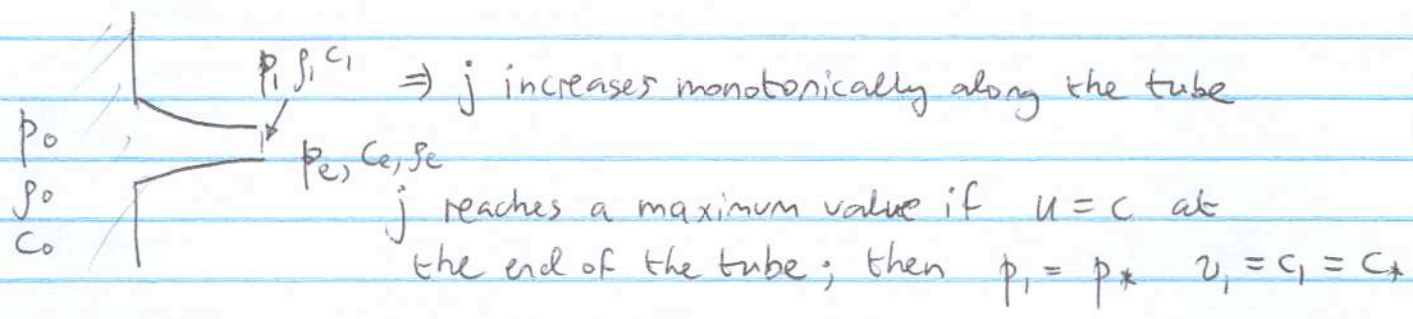 p₁ ρ₁ c₁ ⇒ j increases monotonically along the tube
p₀
pₑ, cₑ, ρₑ
ρ₀
j reaches a maximum value if u = c at
c₀
the end of the tube; then p₁ = p* v₁ = c₁ = c*